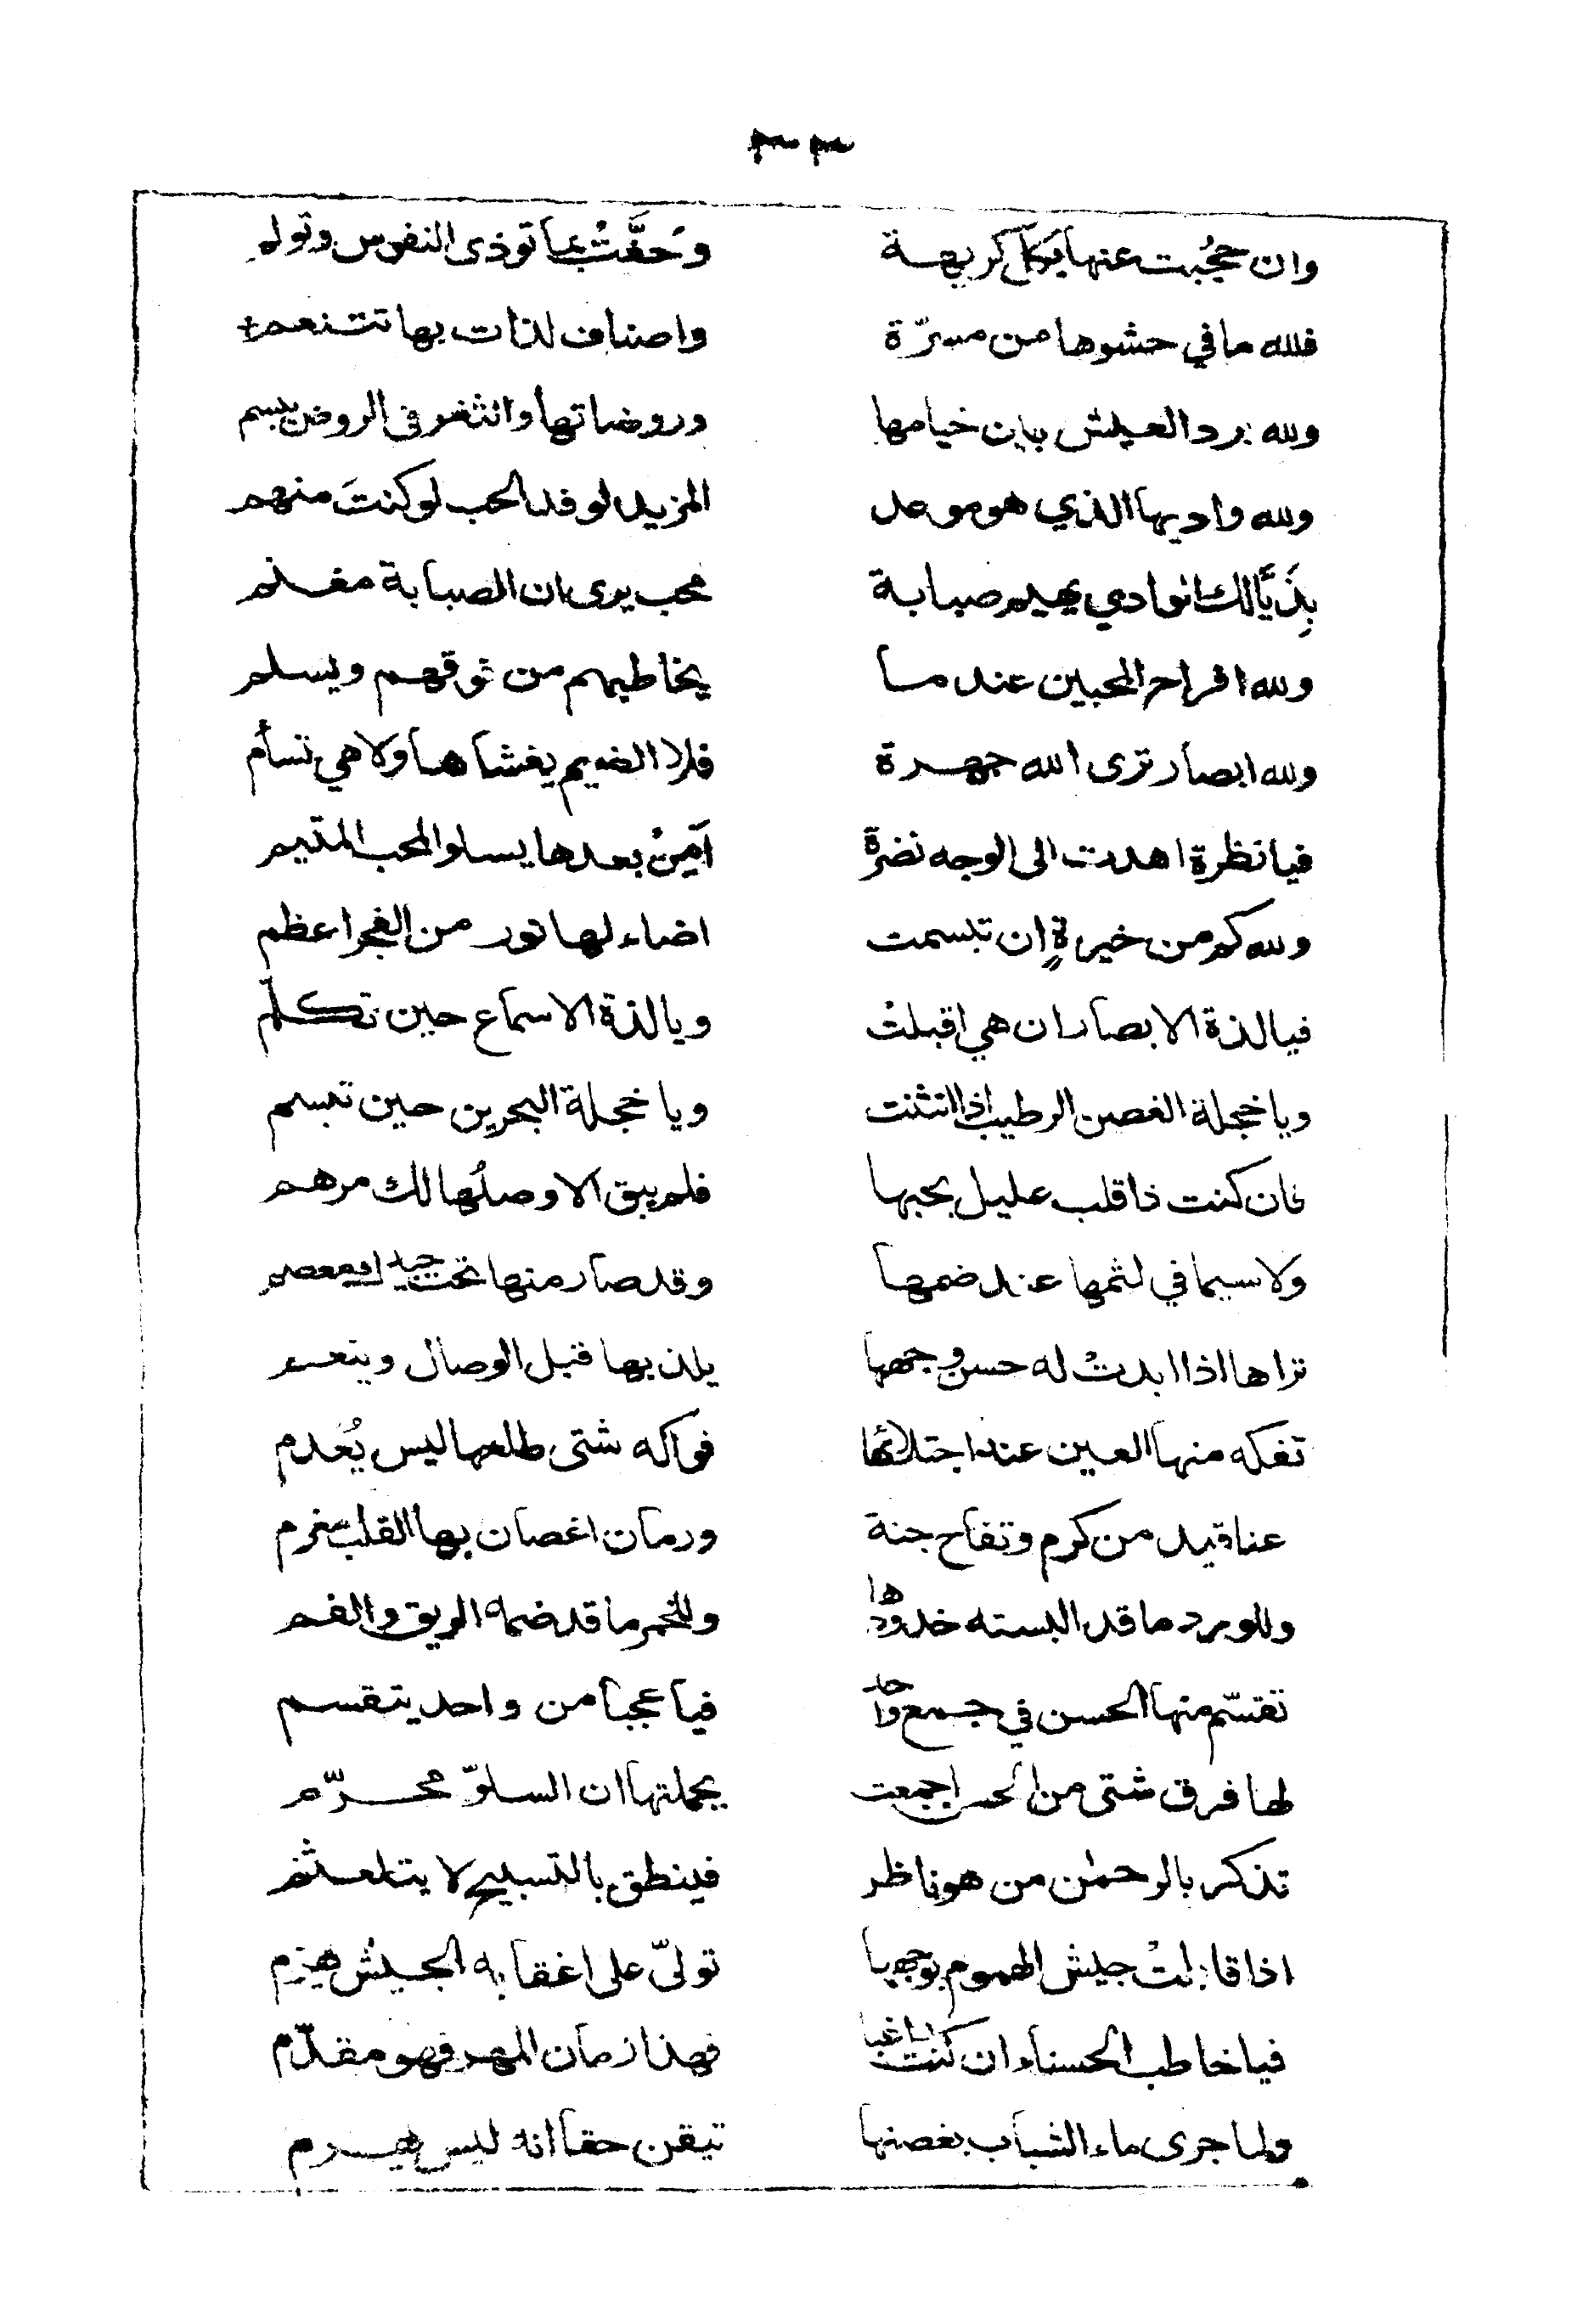 ٣٣
وان حُجُبت عنها بكل كريهة وَحفَّتْ بما توذى النفوس وتولم
فلله ما في حشوها من مسرّة واصناف لذات بها تتنعم
ولله برد العيش بين خيامها وروضاتها والثغر في الروض يبسم
ولله واديها الذي هو موعد المزيد لوفد الحب لو كنتَ منهم
بِذَيَّالك الوادي يهيم صبابة محب يرى ان الصبابة مغنم
ولله افراح المحبين عند ما يخاطبهم من فوقهم ويسلم
ولله ابصار ترى الله جهرة فلا الضيم يغشاها ولا هي تسأم
فيا نظرة اهدت الى الوجه نضرة أمِنْ بعدها يسلو المحب المتيم
ولله كم من خيرةٍ ان تبسمت اضاء لها نور من الفجر اعظم
فيا لذة الابصار ان هي اقبلتْ ويا لذة الاسماع حين تكلّم
ويا خجلة الغصن الرطيب اذا انثنت ويا خجلة البحرين حين تبسم
فان كنت ذا قلب عليل بحبها فلم يبق الا وصلُها لك مرهم
ولا سيما في لثمها عند ضمها وقد صار منها تحت جيد لك معصم
تراها اذا ابدتْ له حسن وجهها يلذ بها قبل الوصال وينعم
تفكه منها العين عند اجتلائها فواكه شتى طلعها ليس يُعدم
عناقيد من كرم وتفاح جنة ورمان اغصان بها القلب مغرم
وللورد ما قد البسته خدودها وللخمر ما قد ضمه الريق والفم
تقسّم منها الحسن في جمع واحد فيا عجبا من واحد يتقسم
لها فرق شتى من الحسن اجمعت بجملتها ان السلوّ محرّم
تذكر بالرحمٰن من هو ناظر فينطق بالتسبيح لا يتلعثم
اذا قابلتْ جيش الهموم بوجهها تولىّ على اعقابه الجيش يهزم
فيا خاطب الحسناء ان كنت راغبا فهذا زمان المهر فهو مقدّم
ولما جرى ماء الشباب بغصنها تيقن حقا انه ليس يهرم